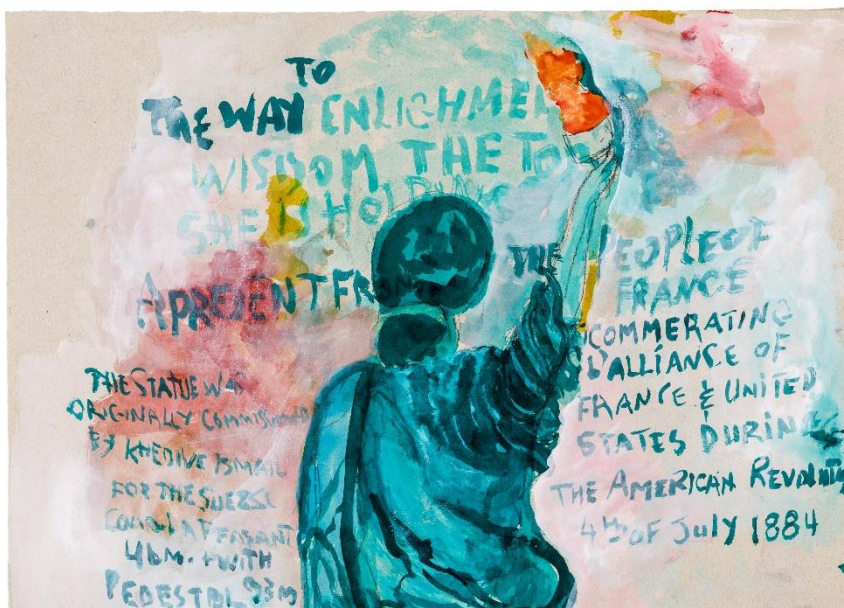 TO
THE WAY ENLIGHMEN
WISDOM THE TO
SHE IS HOLDING
A PRESENT FR
THE PEOPLE OF
FRANCE
COMMERATING
L'ALLIANCE OF
FRANCE & UNITED
STATES DURING
THE AMERICAN REVOLUTI
4TH OF JULY 1884
THE STATUE WAS
ORIGINALLY COMMISSIONED
BY KHEDIVE ISMAIL
FOR THE SUEZ
A PEASANT
46M. WITH
PEDESTAL 93M